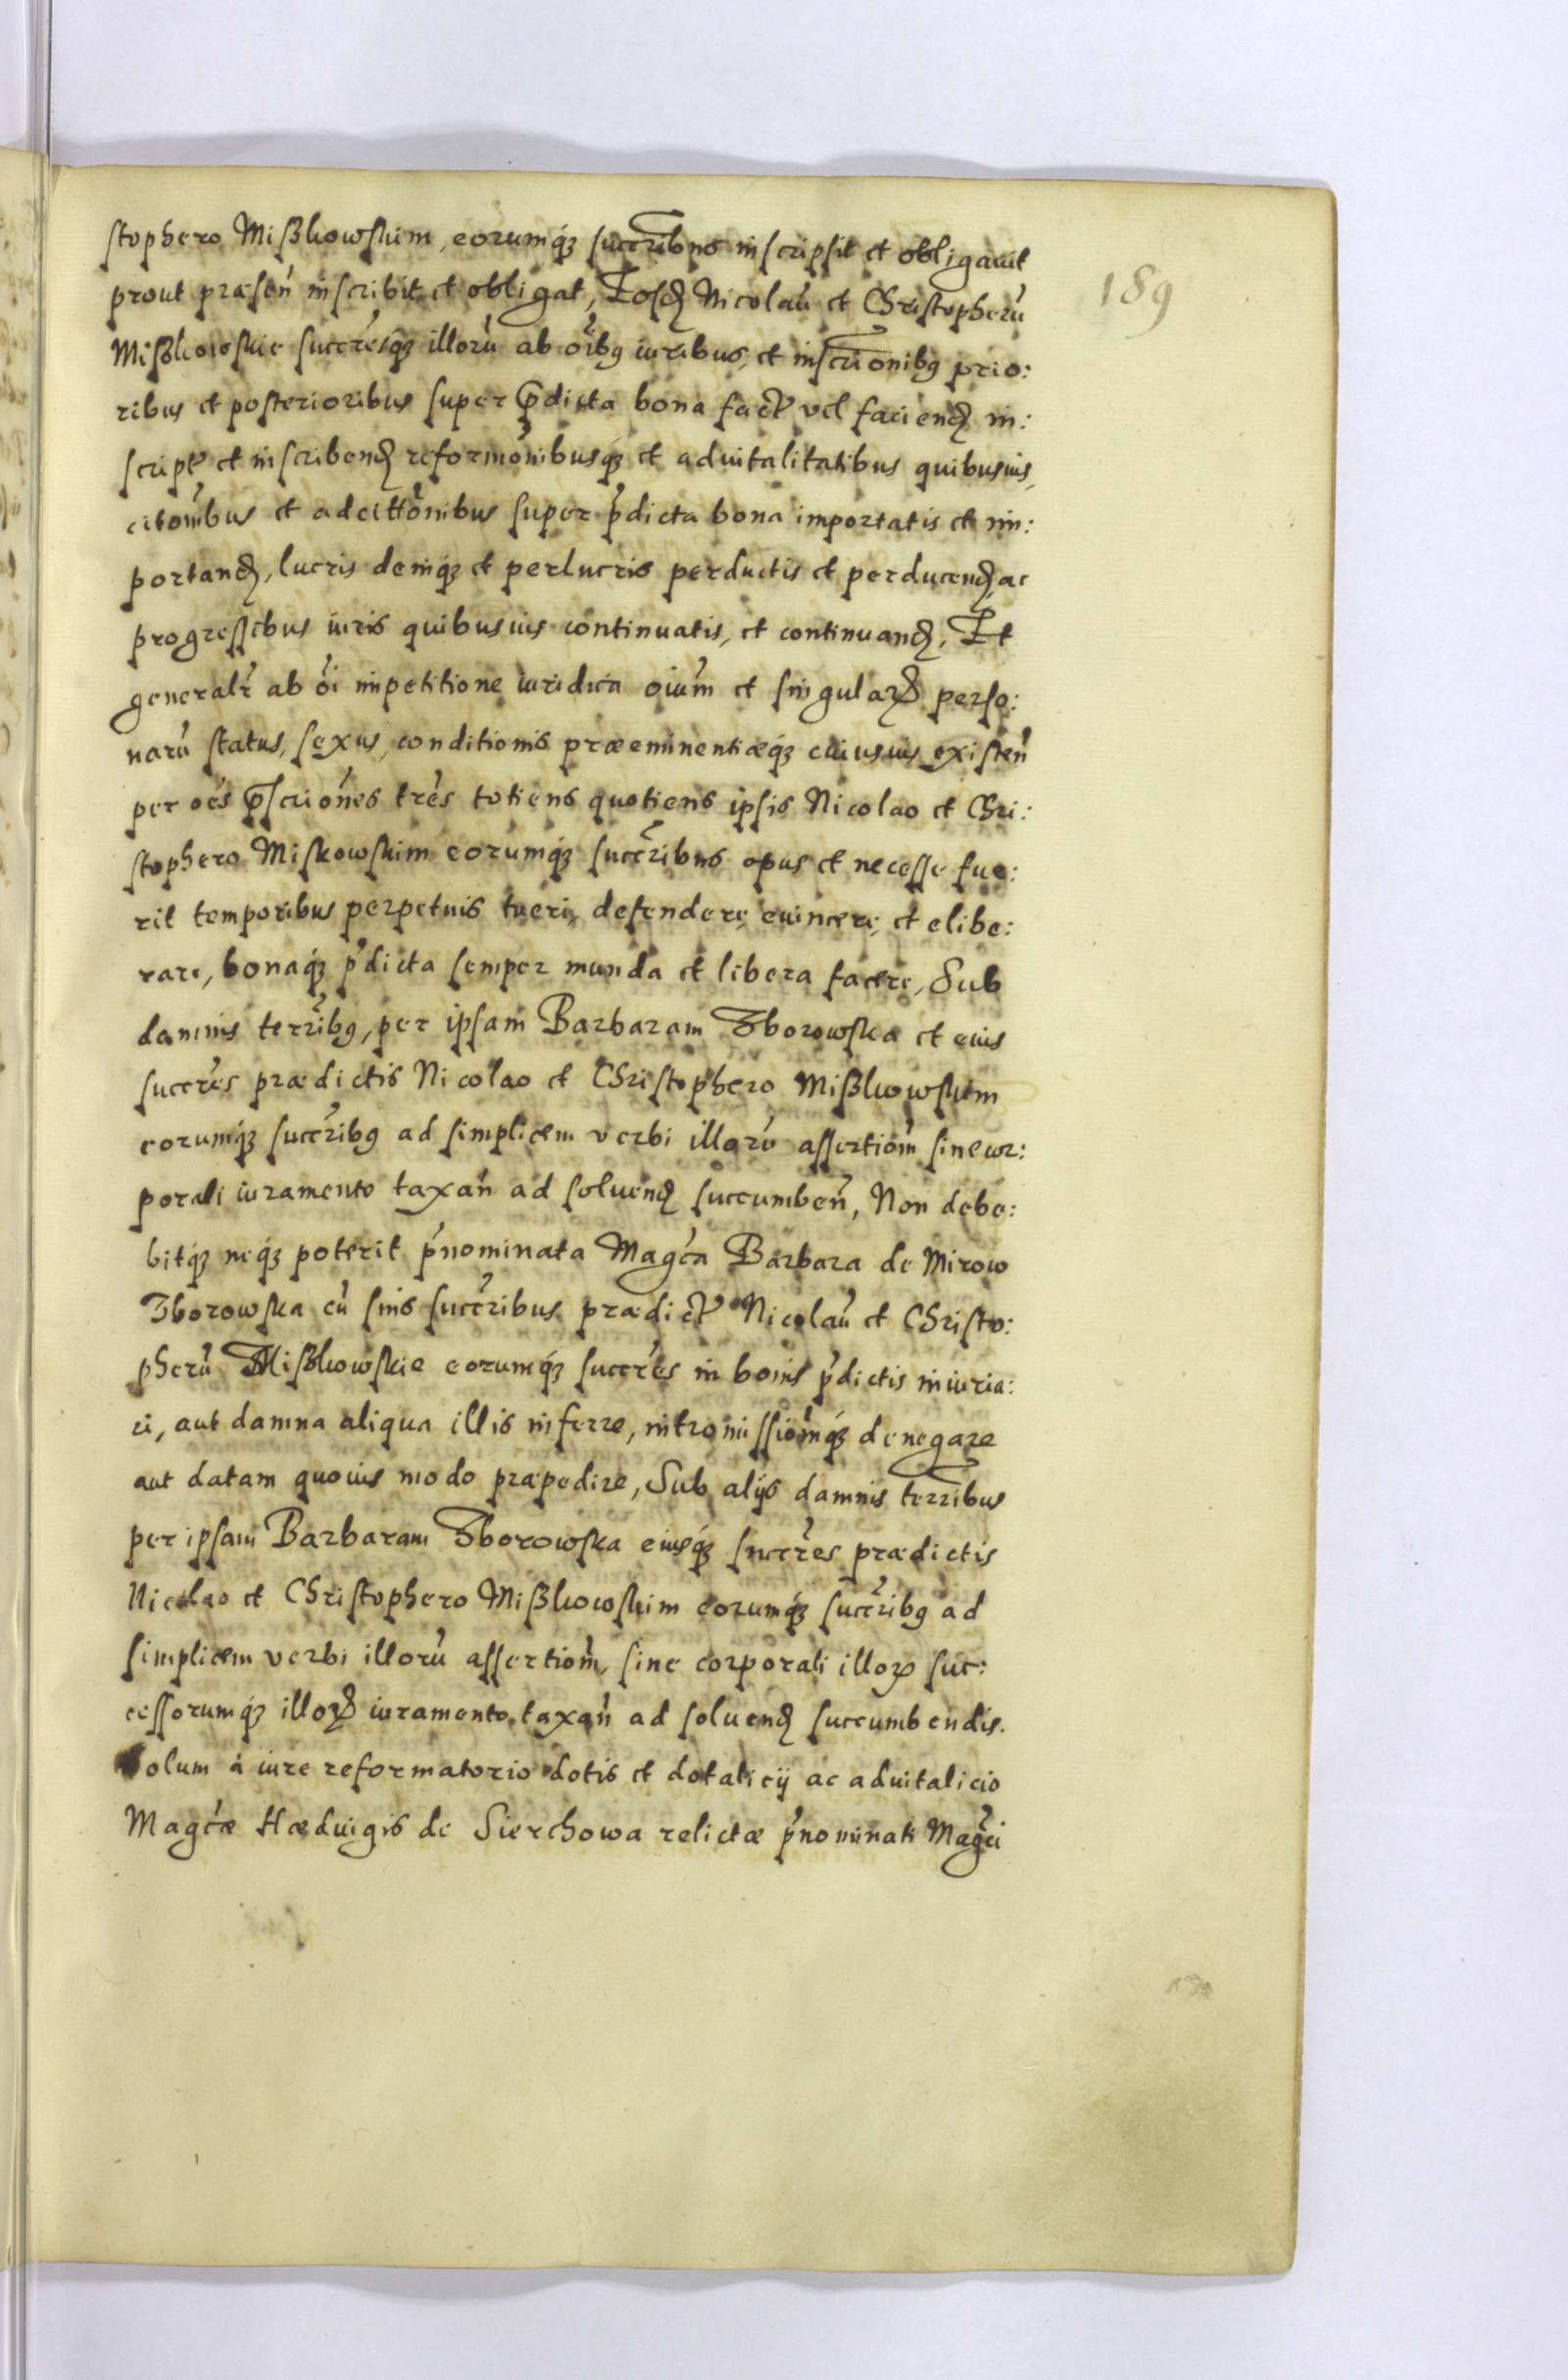 stophero Mißkowskim, eorumq́ꝫ succr̃ibus inscripsit et obligauit
prout præsen̄ inscribit et obligat, Eosdꝫ Nicolaū et Christopherū
Mißkowskie succr̃esq́ꝫ illorū ab oĩbꝰ iuribus, et inscri͠onibꝰ prio:
ribus et posterioribus super p̃dicta bona fact̃ vel faciendꝫ in:
script̃ et inscribendꝫ reformõnibusq́ꝫ et aduitalitatibus quibusuis,
citõnibus et adcittõnibus super p̃dicta bona importatis et im:
portandꝫ, lucris deniq́ꝫ et perlucris perductis et perducendꝫ, ac
progressibus iuris quibusuis continuatis, et continuandꝫ, Et
generalr̃ ab oĩ impetitione iuridica oiūm et singularꝝ perso:
narū status, sexus, conditionis præeminentiæq́ꝫ cuiusuis existen̄
per oẽs p̃scriõnes tr̃es totiens quotiens ipsis Nicolao et Chri:
stophero Miskowskim eorumq́ꝫ succr̃ibus opus et necesse fue:
rit temporibus perpetuis tueri, defendere, euincere, et elibe:
rare, bonaq́ꝫ p̃dicta semper munda et libera facere, Sub
damnis terr̃ibꝰ, per ipsam Barbaram Zborowska et eius
succr̃es prædictis Nicolao et Christophero Mißkowskim
eorumq́ꝫ succr̃ibꝰ ad simplicem verbi illorū assertiōm sine cor:
porali iuramento taxan̄ ad soluendꝫ succumben̄, Non debe:
bitq́ꝫ neq́ꝫ poterit p̃nominata Magc̃a Barbara de Mirow
Zborowska cū suis succr̃ibus prædict̃ Nicolaū et Christo:
pherū Mißkowskie eorumq́ꝫ succr̃es in bonis p̃dictis iniuria:
ri, aut damna aliqua illis inferre, intromissiōmq́ꝫ denegare
aut datam quouis modo præpedire, Sub alijs damnis terr̃ibus
per ipsam Barbaram Zborowska eiusq́ꝫ succr̃es prædictis
Nicolao et Christophero Mißkowskim eorumq́ꝫ succr̃ibꝰ ad
simplicem verbi illorū assertiōm, sine corporali illorꝝ suc:
cessorumq́ꝫ illorꝝ iuramento taxan̄ ad soluendꝫ succumbendis.
Solum à iure reformatorio dotis et dotalicij ac aduitalicio
Magc̃æ Hæduigis de Sierchowa relictæ p̃nominati Magc̃i
189